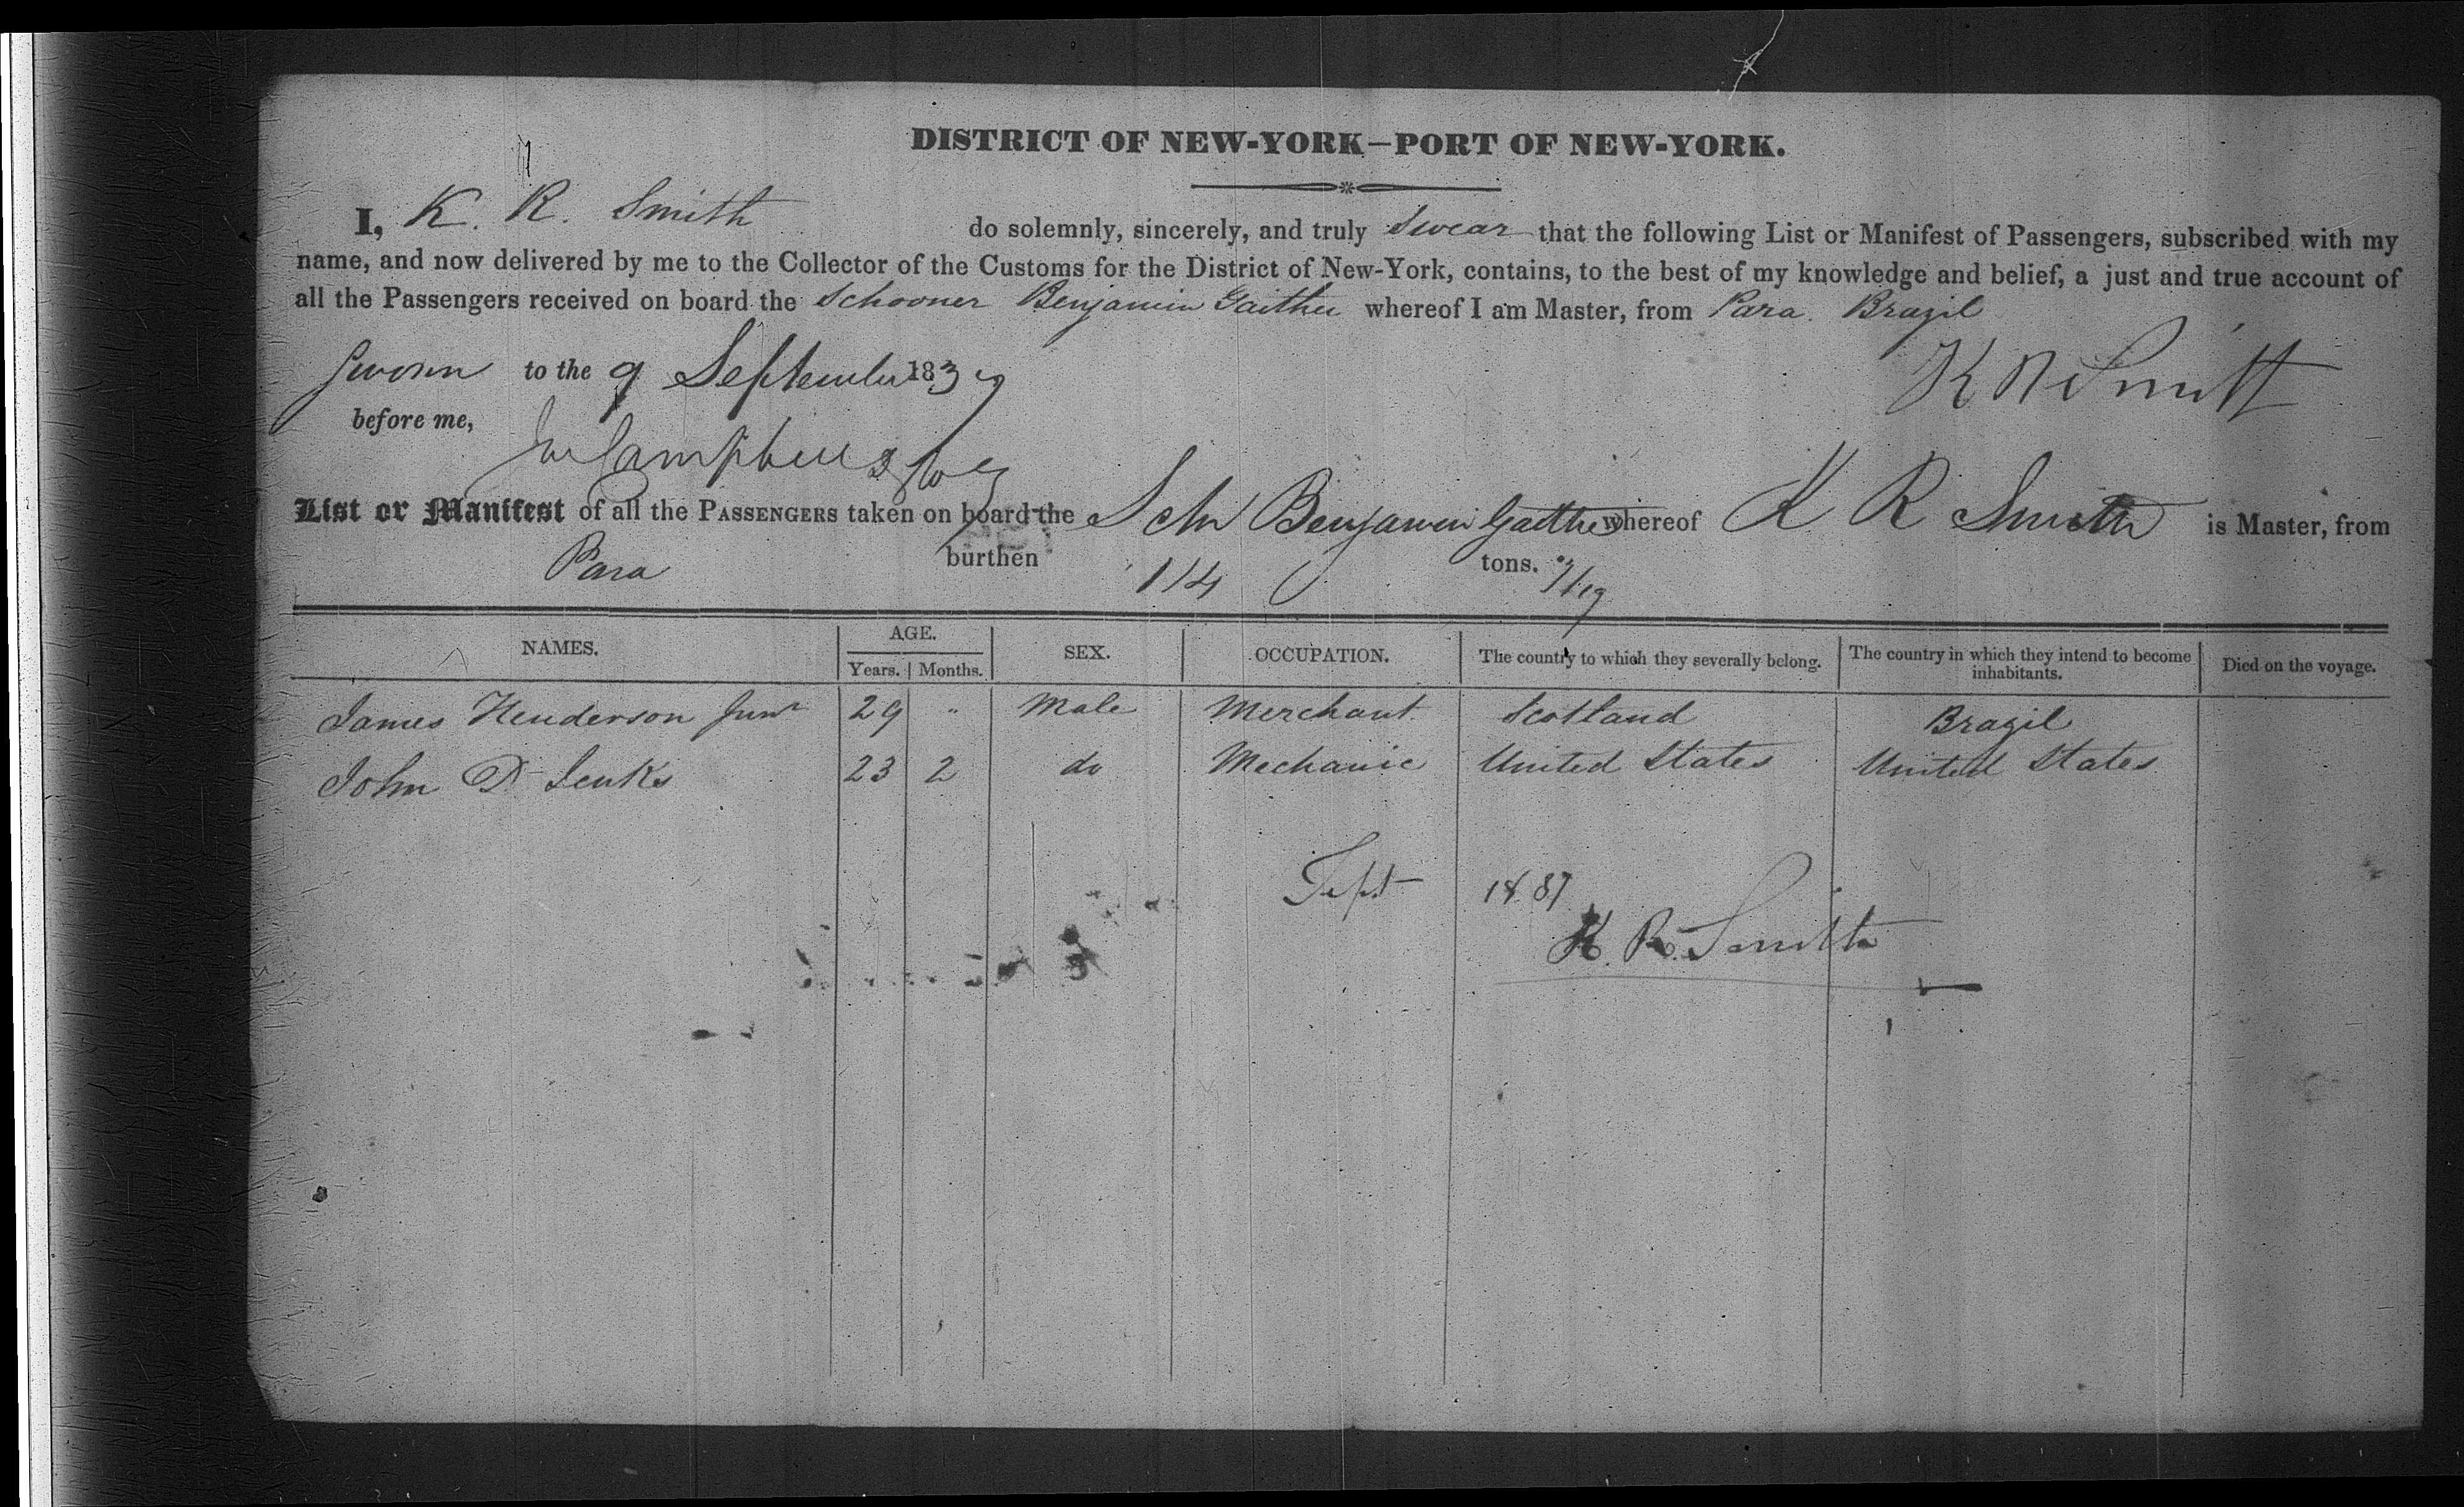 DISTRICT OF NEW-YORK—PORT OF NEW-YORK.
I, K. R. Smith do solemnly, sincerely, and truly Swear that the following List or Manifest of Passengers, subscribed with my
name, and now delivered by me to the Collector of the Customs for the District of New-York, contains, to the best of my knowledge and belief, a just and true account of
all the Passengers received on board the Schooner Benjamin Gaither whereof I am Master, from Para. Brazil
Sworn to the 9 September 1837
K R Smith
before me,
List or Manifest of all the PASSENGERS taken on board the Schr Benjamin Gaither whereof K R Smith is Master, from
Para burthen 114 tons.
NAMES. AGE. Years. Months. SEX. OCCUPATION. The country to which they severally belong. The country in which they intend to become inhabitants. Died on the voyage.
James Henderson Junr 29 " Male Merchant Scotland Brazil
John D Jenks 23 2 do Mechanic United States United States
Sept 1837
K. R. Smith